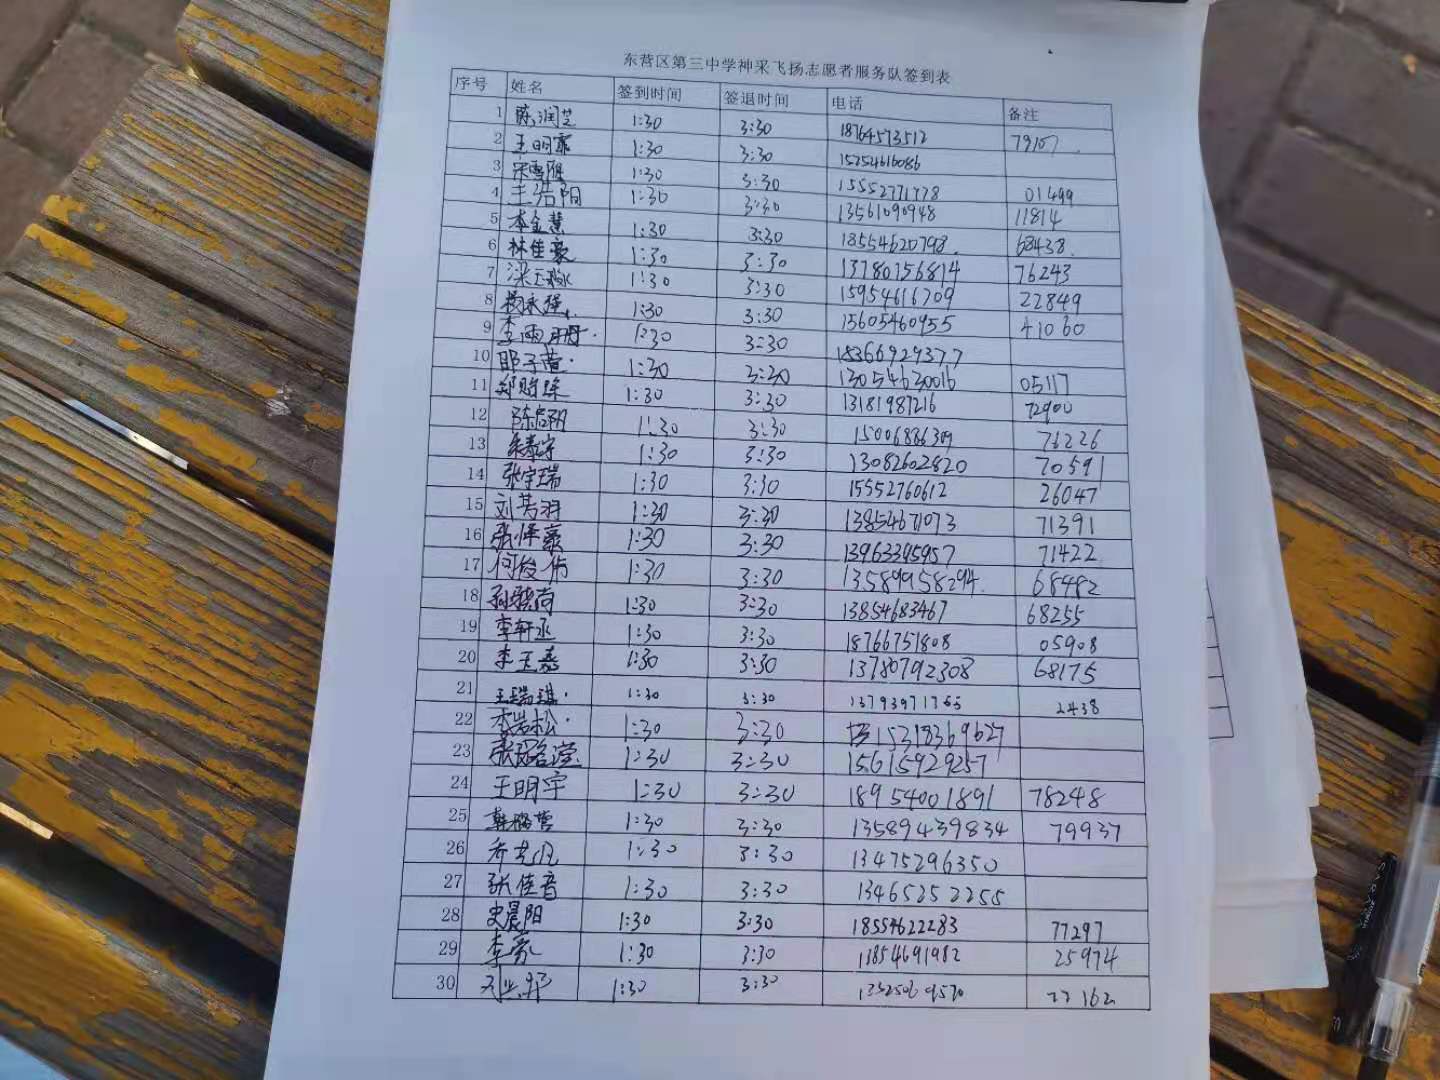 东营区第三中学神采飞扬志愿者服务队签到表
序号 姓名 签到时间 签退时间 电话 备注
1 陈润芝 1:30 3:30 18764573512 79107
2 王明霏 1:30 3:30 15254616086
3 宋雪雁 1:30 3:30 15552771778 01499
4 王浩阳 1:30 3:30 13561090948 11814
5 李金慧 1:30 3:30 18554620798. 68438.
6 林佳豪 1:30 3:30 13780756814 76243
7 梁玉 1:30 3:30 15954616709 22849
8 杨永强 1:30 3:30 15605460955 41060
9 李雨 1:30 3:30 18366929377
10 邵子萱 1:30 3:30 13054630016 05117
11 郑 1:30 3:30 13181987216 72900
12 陈启阳 1:30 3:30 15006886309 76226
13 1:30 3:30 13082602820 70591
14 张宇瑞 1:30 3:30 15552760612 26047
15 刘芳羽 1:30 3:30 13854671073 71391
16 张怿豪 1:30 3:30 13963395957 71422
17 何俊佑 1:30 3:30 13589958294. 68482
18 1:30 3:30 13854683467 68255
19 李轩丞 1:30 3:30 18766751808 05908
20 李玉嘉 1:30 3:30 13780792308 68175
21 王瑞琪 1:30 3:30 13793971765 2438
22 李岩松 1:30 3:30 15318369627
23 张滢 1:30 3:30 15615929257
24 王明宇 1:30 3:30 18954001891 78248
25 1:30 3:30 13589439834 79937
26 乔 1:30 3:30 13475296350
27 张佳音 1:30 3:30 13465252255
28 史晨阳 1:30 3:30 18554622283 77297
29 李 1:30 3:30 13854691982 25974
30 1:30 3:30 22162